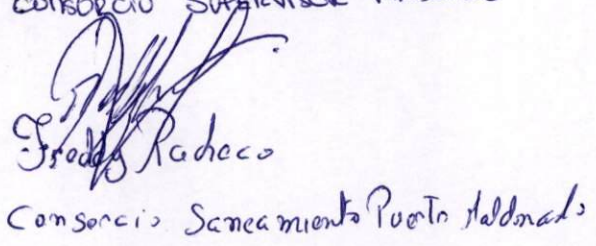 CONSORCIO SUPERVISOR
Freddy Pacheco
Consorcio Saneamiento Puerto Maldonado